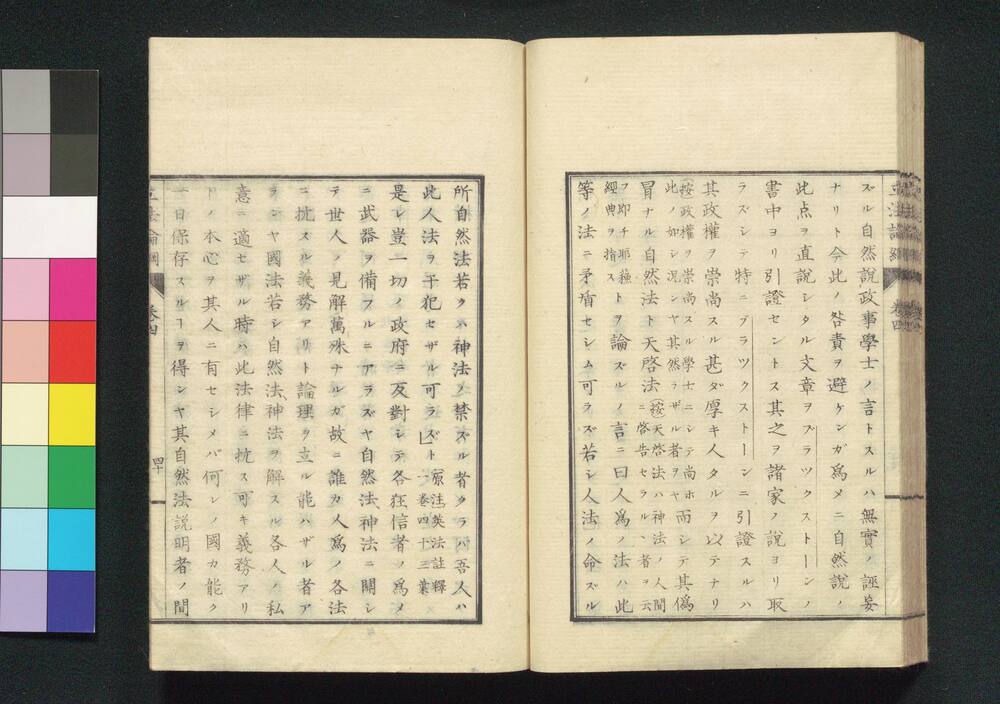 ズル自然說政事學士ノ言トスルハ無實ノ誣妄
ナリト今此ノ咎責ヲ避ケンガ爲メニ自然說ノ
此点ヲ直說シタル文章ヲブラツクストーンノ
書中ヨリ引證セントス其之ヲ諸家ノ說ヨリ取
ラズシテ特ニブラツクストーンニ引證スルハ
其政權ヲ崇尚スル甚ダ厚キ人タルヲ以テナリ
(按政權ヲ崇尚スル學士ニシテ尚ホ
此ノ如シ況ンヤ其然ラザル者ヲヤ
而シテ其僞
冒ナル自然法ト天啓法
(按天啓法ハ神法ノ人間
ニ啓告セラルヽ者ヲ云
フ即チ耶穌
經典ヲ指ス
トヲ論ズルノ言ニ曰人爲ノ法ハ此
等ノ法ニ矛盾セシム可ラズ若シ人法ノ命ズル
立法論綱
卷四
所自然法若クハ神法ノ禁ズル者タラバ吾人ハ
此人法ヲ干犯セザル可ラズト
原注英法註釋
一卷四十三葉
是レ豈一切ノ政府ニ反對シテ各狂信者ノ爲メ
ニ武器ヲ備フルニアラズヤ自然法神法ニ關シ
テ世人ノ見解萬殊ナルガ故ニ誰カ人爲ノ各法
ニ抗スル義務アリト論理ヲ立ル能ハザル者ア
ランヤ國法若シ自然法神法ヲ解スル各人ノ私
意ニ適セザル時ハ此法律ニ抗ス可キ義務アリ
トノ本心ヲ其人ニ有セシメバ何レノ國カ能ク
一日保存スルヿヲ得ンヤ其自然法說明者ノ間
立法論綱
卷四
四十